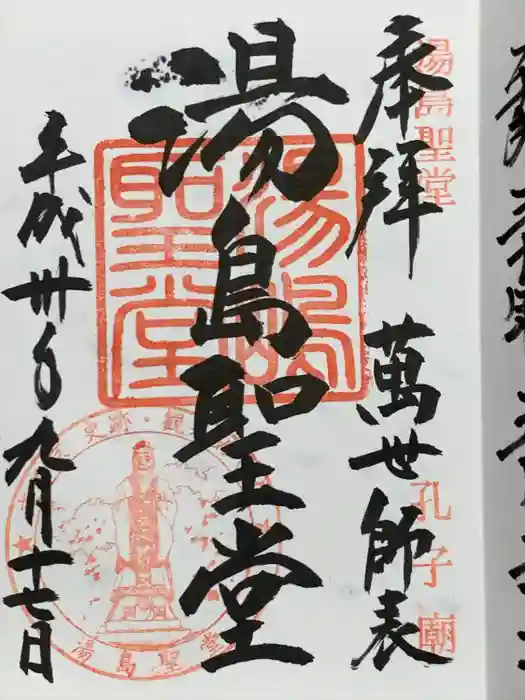 奉拝
湯島聖堂
萬世師表
孔子廟
湯島聖堂
湯島聖堂
平成卅年九月十七日
史跡・観
湯島聖堂